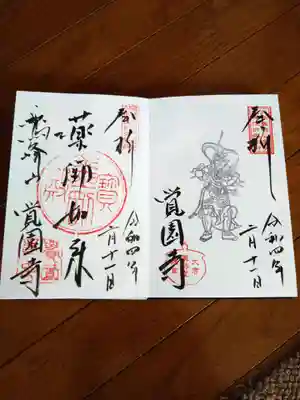 奉拝
令和四年
二月十一日
覚園寺
奉拝
令和四年
二月十一日
薬師如来
鷲峰山 覚園寺